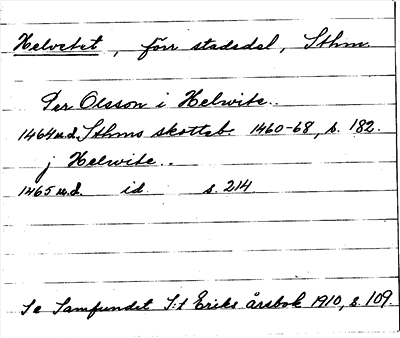 Helvetet, förr stadsdel, Sthm
Per Olsson i Helwite..
1464 u.d. Sthms skotteb. 1460-68, s. 182.
j Helwite..
1465 u.d. id s. 214.
Se Samfundet S:t Eriks årsbok 1910, s. 109.